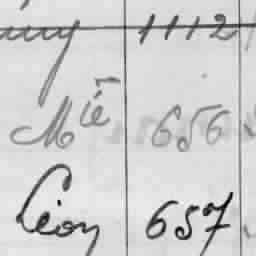 1112
Mie 656
Léon 657